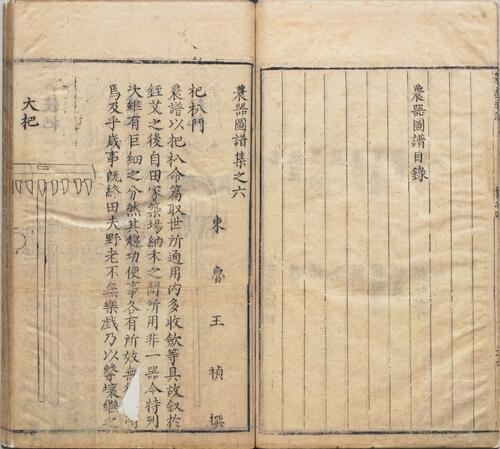 農器圖譜目錄
農器圖譜集之六
東魯王禎撰
杷朳門
農譜以杷朳命篇取世所通用內多收斂等具故敘於
銍艾之後自田家築場納禾之間所用非一器今特列
次雖有巨細之分然其趨功便事各有所效無
焉及乎歲事旣終田夫野老不無樂戲乃以擊壤繼之
大杷